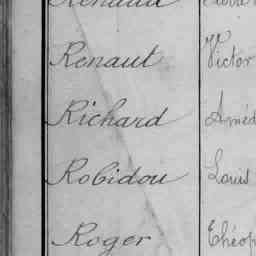 Renaud
Renaut Victor
Richard Améd
Robidou Louis
Roger Théop